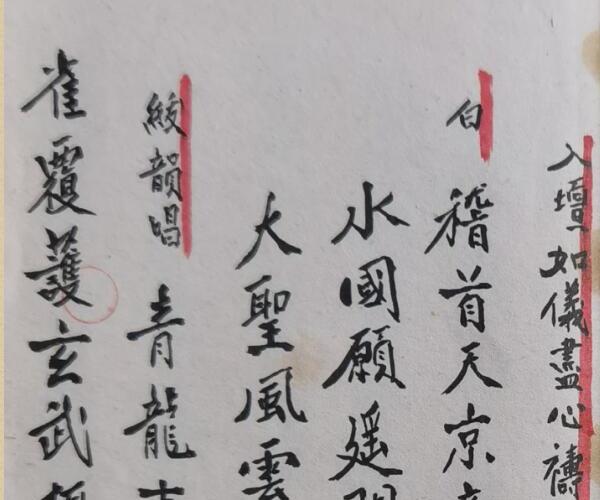 入壇如儀盡心禱
白 稽首天京
水國願遥
大聖風雲
緩韻唱 青龍
雀覆護玄武